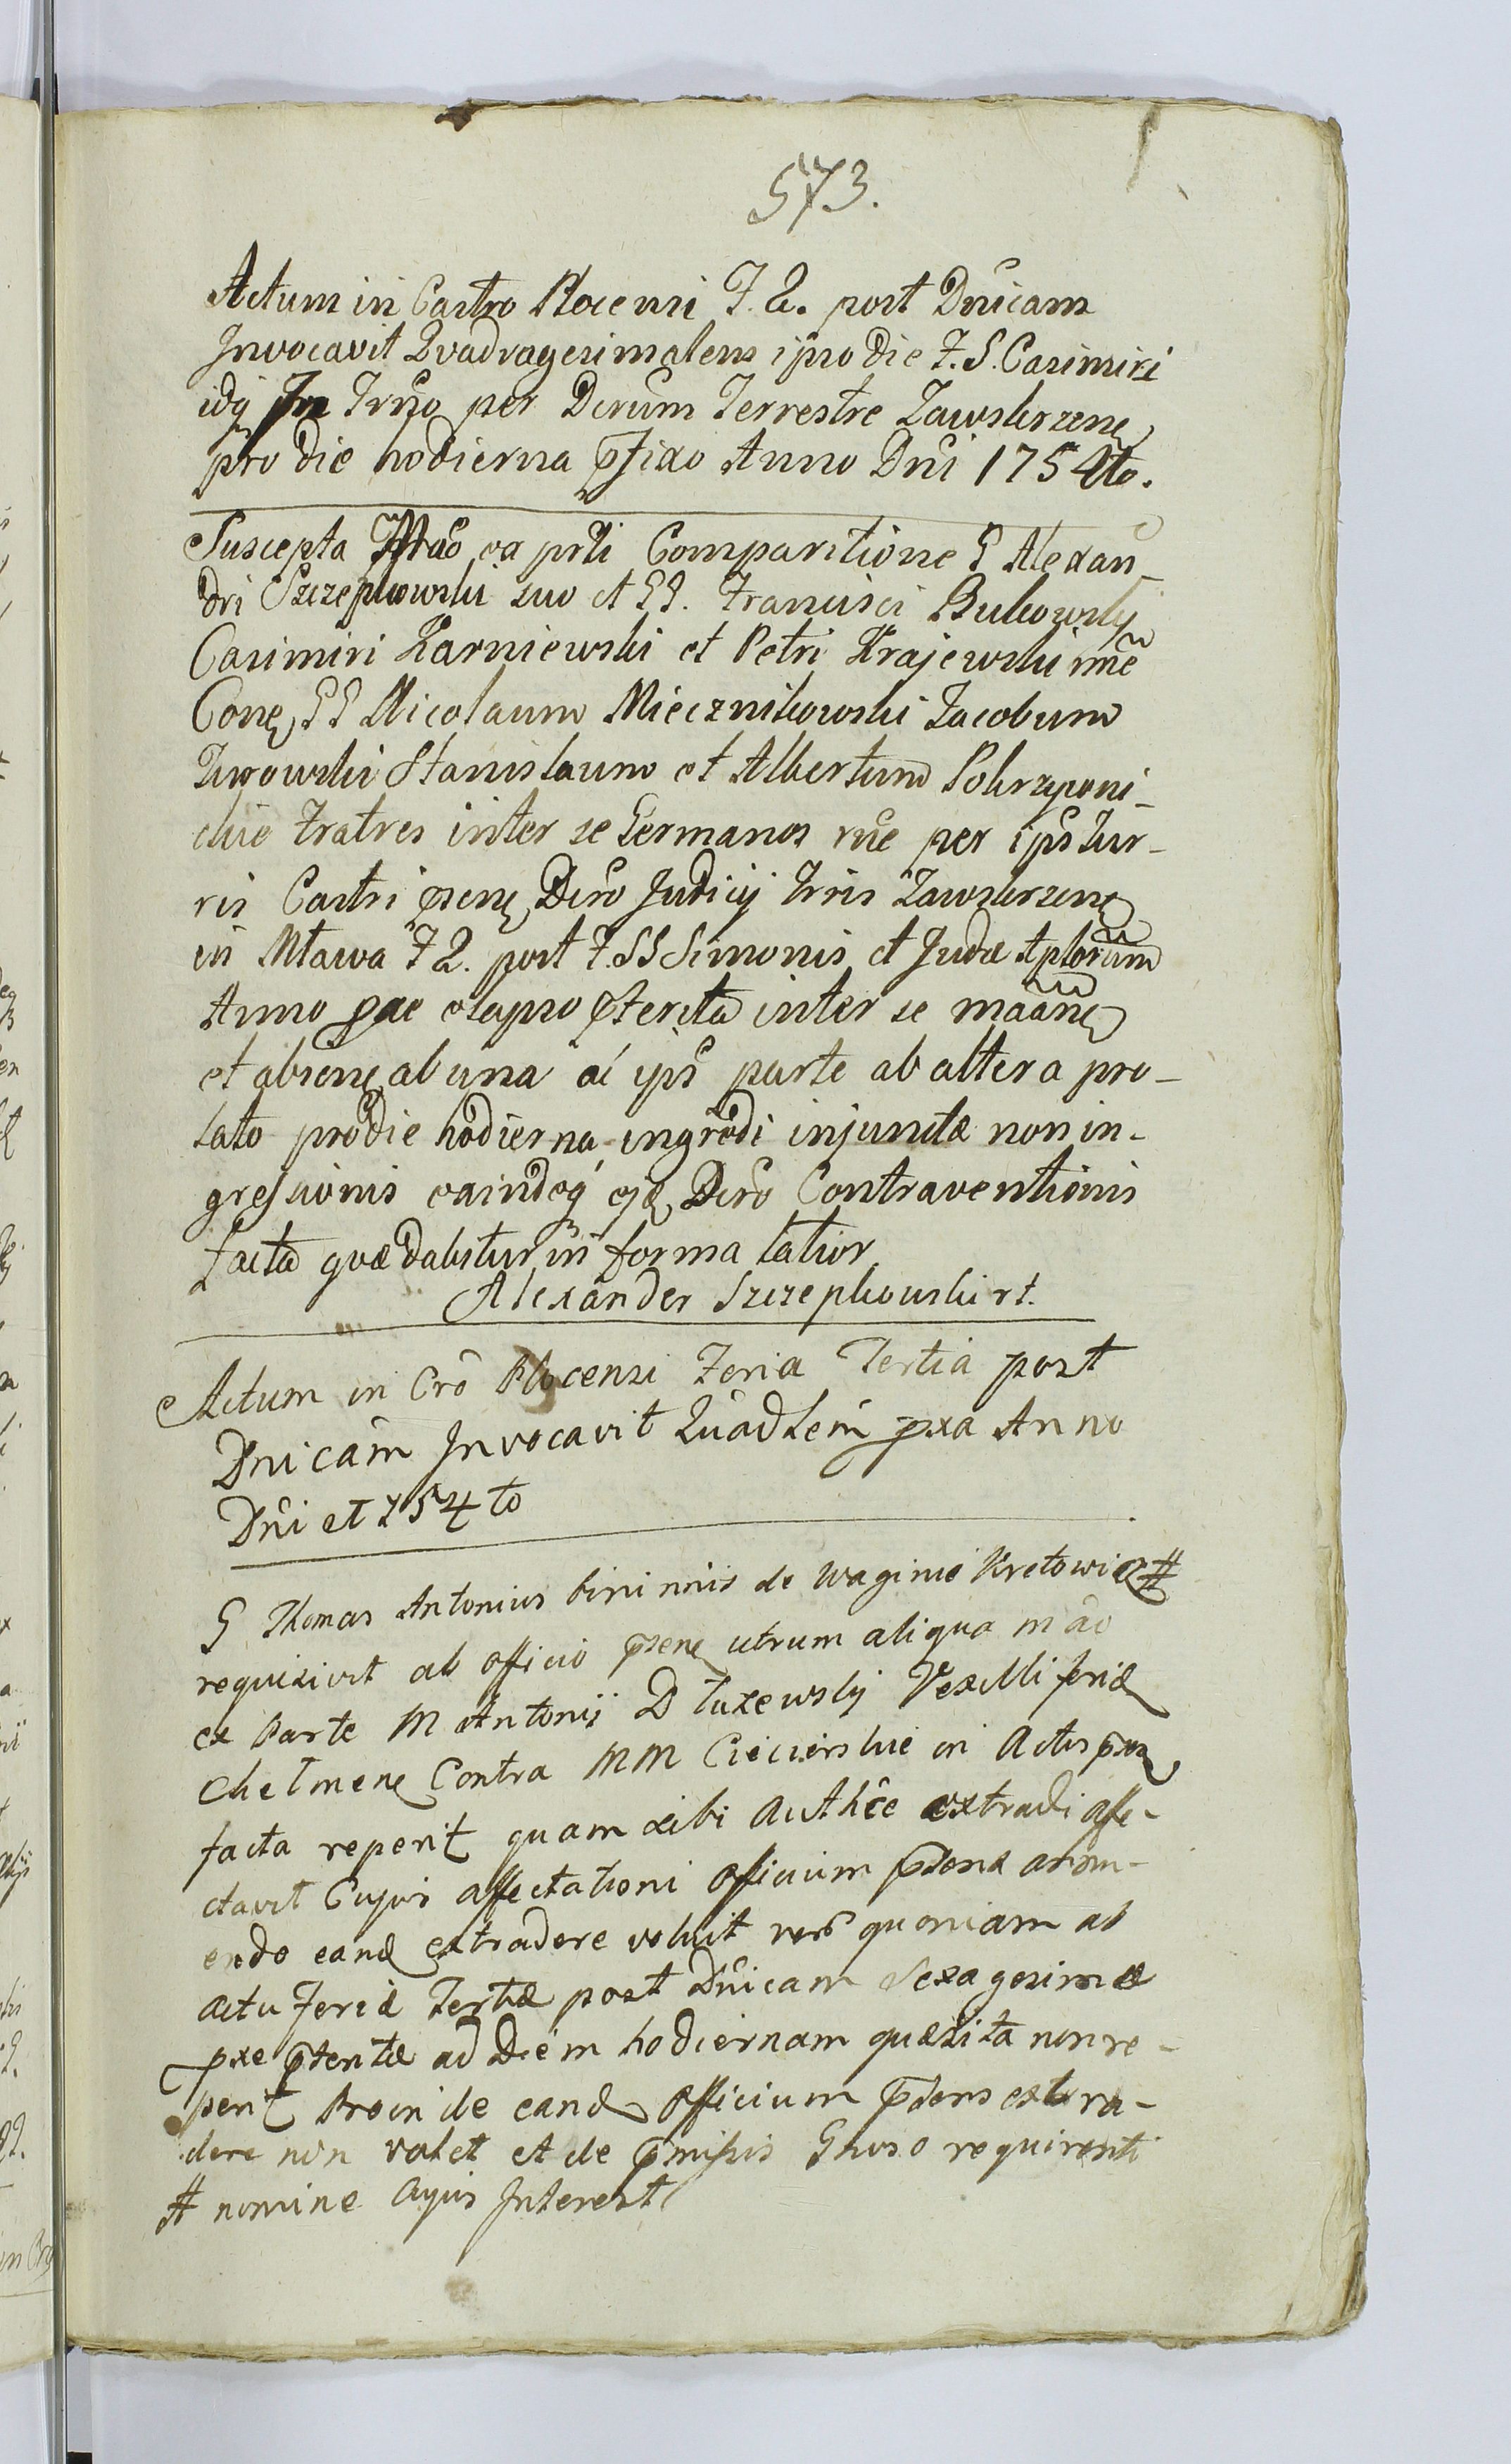 573.
Actum in Castro Plocensi F. 2. post Dnicam
Invocavit Qvadragesimalem ipso die F. S. Casimiri
idq in Trno per Dcrum Terrestre Zawskrzens
pro die hodierna pfixo Anno Dni 1754to.
Suscepta Mtaõ ex prti Comparitione G Alexan-
dri Szczepkowski suo et GG. Francisci Bukowsky
Casimiri Karniewski et Petri Krajewski nne
Cone GG Nicolaum Miecznikowski Jacobum
Zurowski Stanislaum et Albertum Pokrzywni-
ckie Fratres inter se Germanos rne per ips Tur-
ris Castri psens Dcro Judicij Trris Zawskrzens
in Mlawa F 2. post F. SS Simonis et Judæ Aplorum
Anno pxe elapso pterita inter se
et absens ab una ac ips parte ab altera pro-
lato pro die hodierna ingredi injunctæ non in-
gressionis exindeq ejd Dcro Contraventionis
facta qvæ dabitur in forma latior
Alexander Szczepkowski rt.
Actum in Crô Plocensi Feria Tertia post
Dnicam Invocavit Quadlem pxa Anno
Dni et 754to
G Thomas Antonius binimis de Waginie Kretowicz #
requisivit ab officio psens utrum aliqua mão
ex Parte M Antonij Dluzewsky Vexilliferid
Chelmens Contra MM Ciecierskie in Actis
facta reperit quam sibi Authce extradi affe-
ctavit Cujus affectationi officium psens annu-
endo eand extradere voluit verõ quoniam ab
actu Feriæ Tertiæ post Dnicam Sexagesimæ
pxe pteritæ ad Diem hodiernam quæsita non re-
perit Proinde eand Officium psens extra-
dere non valet et de pmissis Gnoso requirenti
# nomine Cujus Interest